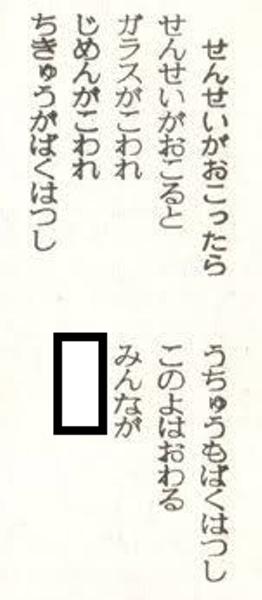 せんせいがおこったら
せんせいがおこると
ガラスがこわれ
じめんがこわれ
ちきゅうがばくはつし
うちゅうもばくはつし
このよはおわる
みんなが